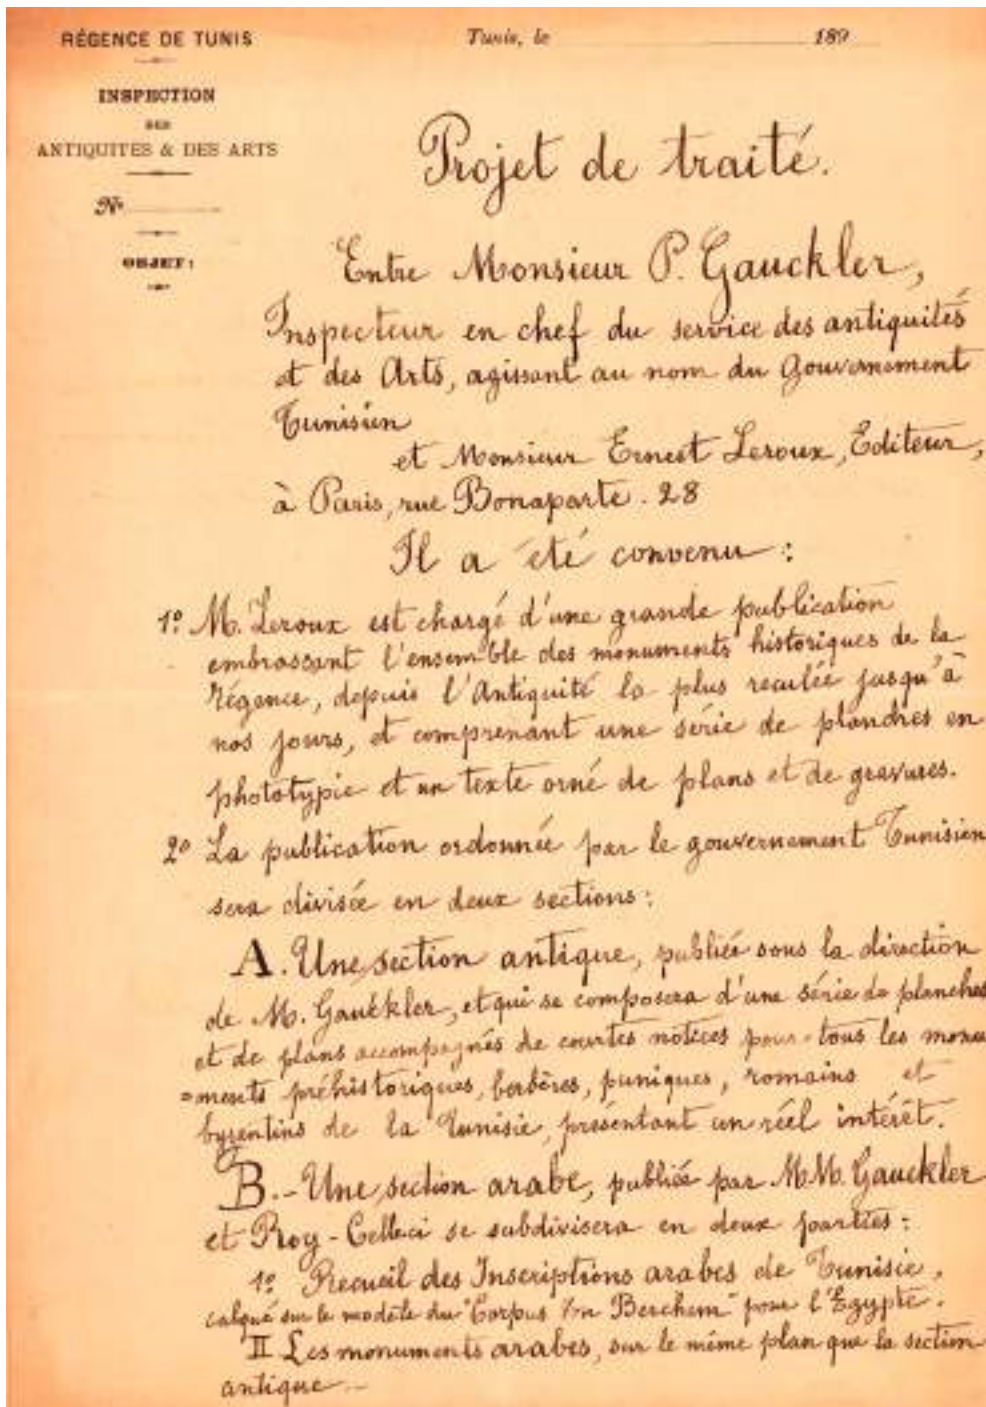 RÉGENCE DE TUNIS
Tunis, le 189
INSPECTION
DES
ANTIQUITES & DES ARTS
N°
OBJET :
Projet de traité.
Entre Monsieur P. Gauckler,
Inspecteur en chef du service des antiquités
et des Arts, agissant au nom du Gouvernement
Tunisien
et Monsieur Ernest Leroux, Editeur,
à Paris, rue Bonaparte. 28
Il a été convenu :
1º M. Leroux est chargé d'une grande publication
embrassant l'ensemble des monuments historiques de la
Régence, depuis l'Antiquité la plus reculée jusqu'à
nos jours, et comprenant une série de planches en
phototypie et un texte orné de plans et de gravures.
2º La publication ordonnée par le gouvernement Tunisien
sera divisée en deux sections :
A. Une section antique, publiée sous la direction
de M. Gauckler, et qui se composera d'une série de planches
et de plans accompagnés de courtes notices pour tous les monu
=ments préhistoriques, berbères, puniques, romains et
byzentins de la Tunisie, présentant un réel intérêt.
B. - Une section arabe, publiée par M.M. Gauckler
et Roy - Celle-ci se subdivisera en deux parties :
1º Recueil des Inscriptions arabes de Tunisie,
calqué sur le modèle du "Corpus Berchem" pour l'Egypte.
II Les monuments arabes, sur le même plan que la section
antique -